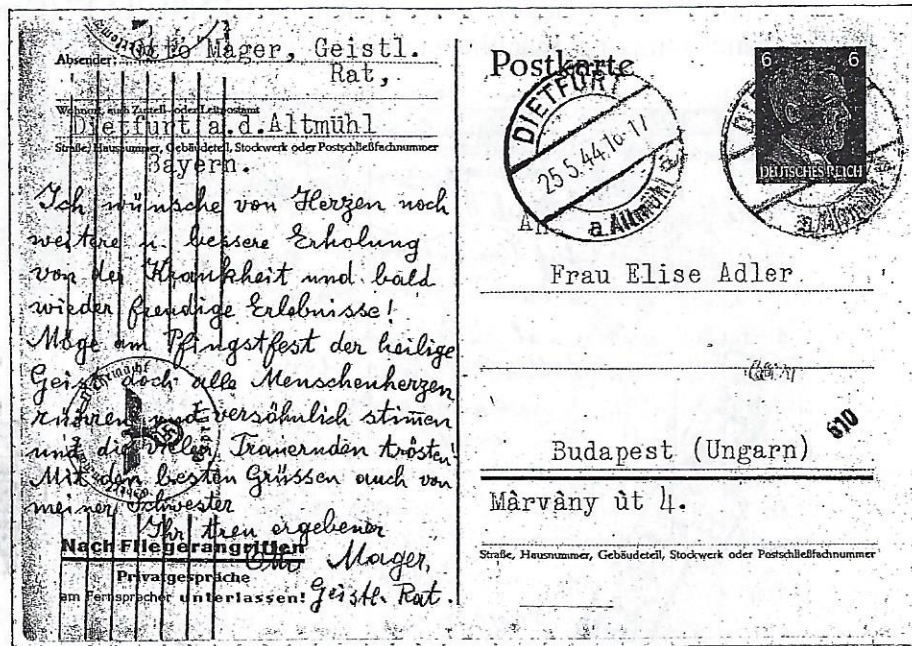 Absender: Otto Mager, Geistl.
Rat,
Wohnort, auch Zustell- oder Leitpostamt
Dietfurt a.d.Altmühl
Straße, Hausnummer, Gebäudeteil, Stockwerk oder Postschließfachnummer
Bayern.
Ich wünsche von Herzen noch
weitere u. bessere Erholung
von der Krankheit und bald
wieder freudige Erlebnisse!
Möge am Pfingstfest der heilige
Geist doch alle Menschenherzen
rühren und versöhnlich stimmen
und die vielen Trauernden trösten!
Mit den besten Grüssen auch von
meiner Schwester
Ihr treu ergebener
Otto Mager,
Geistl. Rat.
Nach Fliegerangriffen
Privatgespräche
am Fernsprecher unterlassen!
Postkarte
DIETFURT
25.5.44.16-17
a. Altmühl
a
6 6
DEUTSCHES REICH
a. Altmühl
An
Frau Elise Adler
610
Budapest (Ungarn)
Màrvàny ùt 4.
Straße, Hausnummer, Gebäudeteil, Stockwerk oder Postschließfachnummer